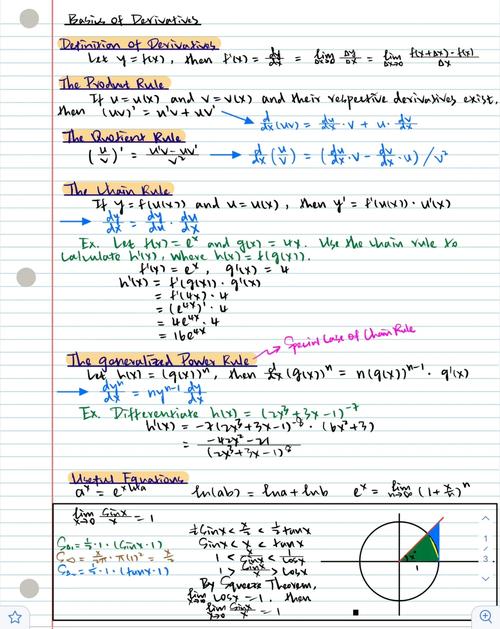 Basics of Derivatives
Definition of Derivatives
Let y = f(x), then f'(x) = dy/dx = lim Δx→0 Δy/Δx = lim Δx→0 (f(x+Δx) - f(x))/Δx
The Product Rule
If u = u(x) and v = v(x) and their respective derivatives exist,
then (uv)' = u'v + uv' → d/dx (uv) = du/dx · v + u · dv/dx
The Quotient Rule
(u/v)' = (u'v - uv')/v² → d/dx (u/v) = (du/dx · v - dv/dx · u) / v²
The Chain Rule
If y = f(u(x)) and u = u(x), then y' = f'(u(x)) · u'(x)
→ dy/dx = dy/du · du/dx
Ex. Let f(x) = eˣ and g(x) = 4x. Use the chain rule to
calculate h'(x), where h(x) = f(g(x)).
f'(x) = eˣ, g'(x) = 4
h'(x) = f'(g(x)) · g'(x)
= f'(4x) · 4
= (e⁴ˣ)' · 4
= 4e⁴ˣ · 4
= 16e⁴ˣ
Special Case of Chain Rule
The generalized Power Rule
Let h(x) = (g(x))ⁿ, then d/dx (g(x))ⁿ = n(g(x))ⁿ⁻¹ · g'(x)
→ dyⁿ/dx = nyⁿ⁻¹ dy/dx
Ex. Differentiate h(x) = (2x³ + 3x - 1)⁻⁷
h'(x) = -7(2x³ + 3x - 1)⁻⁸ · (6x² + 3)
= (-42x² - 21)/(2x³ + 3x - 1)⁸
Useful Equations
aˣ = eˣˡⁿᵃ ln(ab) = lna + lnb eˣ = lim n→∞ (1 + x/n)ⁿ
lim x→0 sinx/x = 1
S = ½ · 1 · (sinx · 1)
S = x/2π · π(1)² = x/2
S = ½ · 1 · (tanx · 1)
½ sinx < x/2 < ½ tanx
sinx < x < tanx
1 < x/sinx < 1/cosx
1 > sinx/x > cosx
By Squeeze Theorem,
lim x→0 cosx = 1, then
lim x→0 sinx/x = 1
x
1
1
3